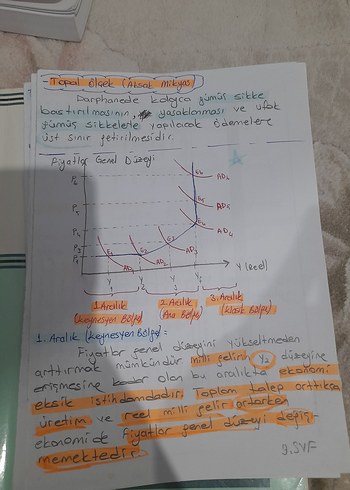 - Topal Ölçek (Aksak Mikyas)
Darphanede kolayca gümüş sikke
bastırılmasının, yasaklanması ve ufak
gümüş sikkelerle yapılacak ödemelere
üst sınır getirilmesidir.
Fiyatlar Genel Düzeyi
P6 E6 AD6
P5 E5 AD5
P4 E4 AD4
P3 E3 AD3
E1 E2
P1 AD1 AD2
Y (Reel)
1. Aralık 2. Aralık 3. Aralık
(Keynesyen Bölge) (Ara Bölge) (Klasik Bölge)
1. Aralık (Keynesyen Bölge):
Fiyatlar genel düzeyini yükseltmeden
arttırmak mümkündür milli gelirin Y2 düzeyine
erişmesine kadar olan bu aralıkta ekonomi
eksik istihdamdadır. Toplam talep arttıkça
üretim ve reel milli gelir artarken
ekonomide fiyatlar genel düzeyi değiş-
memektedir.
9.SYF